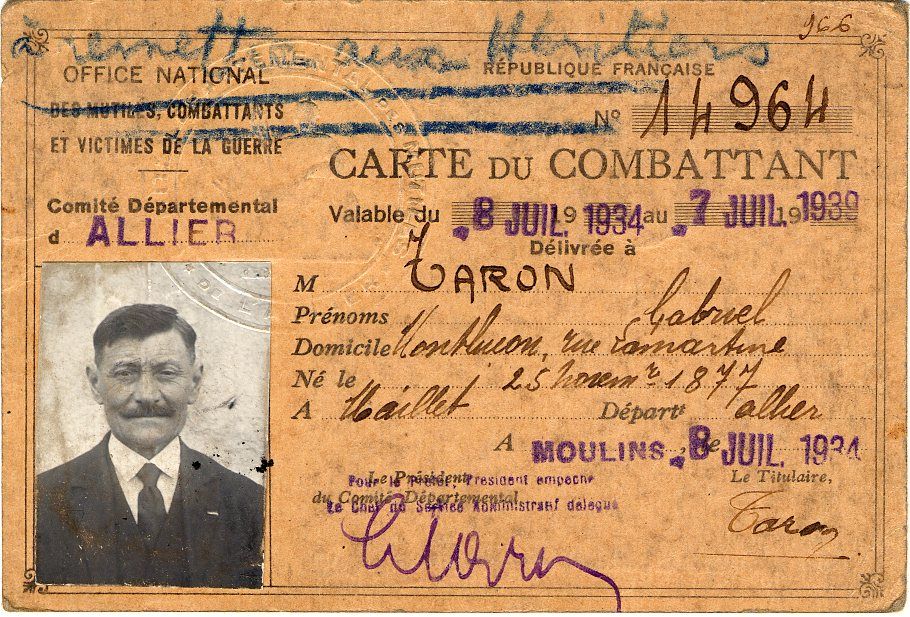 à remettre aux Héritiers
966
OFFICE NATIONAL
DES MUTILÉS, COMBATTANTS
ET VICTIMES DE LA GUERRE
Comité Départemental
d ALLIER
RÉPUBLIQUE FRANÇAISE
N° 14964
CARTE DU COMBATTANT
Valable du 8 JUIL. 1934 au 7 JUIL. 1939
Délivrée à
M TARON
Prénoms Gabriel
Domicile Montluçon, rue Lamartine
Né le 25 novembre 1877
A Maillet Départt allier
A MOULINS, le 8 JUIL. 1934
Le Président
du Comité Départemental
Pour le Préfet, Président empeché
Le Chef du Service Administratif délégué
Le Titulaire,
Taron